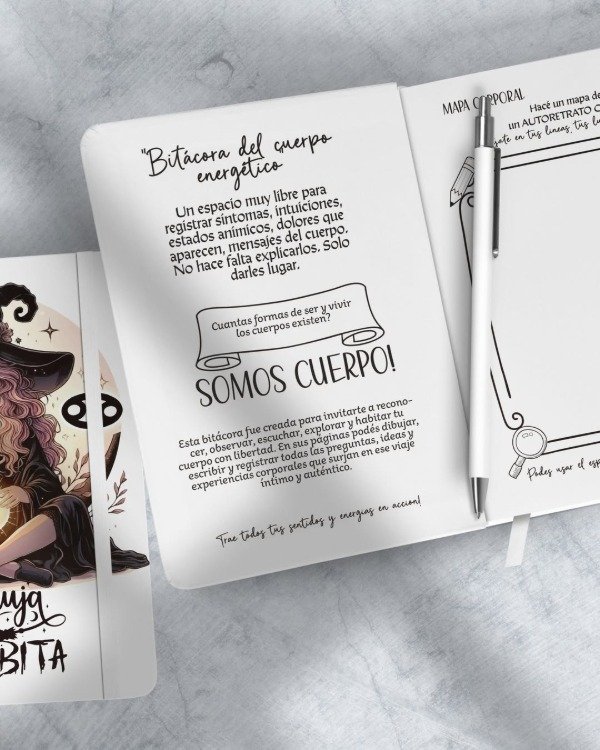 "Bitácora del cuerpo
energético
Un espacio muy libre para
registrar síntomas, intuiciones,
estados anímicos, dolores que
aparecen, mensajes del cuerpo.
No hace falta explicarlos. Solo
darles lugar.
Cuantas formas de ser y vivir
los cuerpos existen?
SOMOS CUERPO!
Esta bitácora fue creada para invitarte a recono-
cer, observar, escuchar, explorar y habitar tu
cuerpo con libertad. En sus páginas podés dibujar,
escribir y registrar todas las preguntas, ideas y
experiencias corporales que surjan en ese viaje
íntimo y auténtico.
Trae todos tus sentidos y energías en acción!
MAPA CORPORAL
Hacé un mapa de
un AUTORETRATO
en tus líneas, tus
Podes usar el
BITA